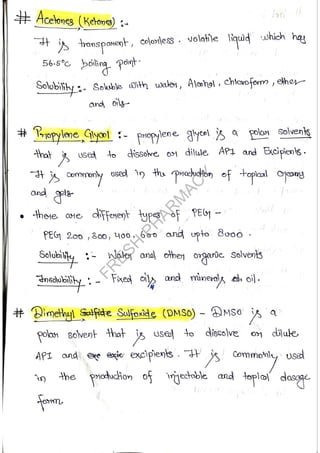 # Acetones (Ketones) :-
It is transparent, colorless. volatile liquid which has
56.5°c boiling point.
Solubility :- Soluble with water, Alcohol, chloroform, ether
and oils
# Propylene Glycol :- propylene glycol is a polar solvents
that is used to dissolve or dilute API and Excipients.
It is commonly used in the production of topical creams
and gels.
• there are different types of PEG -
PEG 200, 300, 400, 600 and upto 8000.
Solubility :- Water and other organic solvents
Insolubility :- Fixed oils and minerals oil.
# Dimethyl Sulfide Sulfoxide (DMSO) - DMSO is a
polar solvent that is used to dissolve or dilute
API and excipients. It is commonly used
in the production of injectable and topical dosage
form.